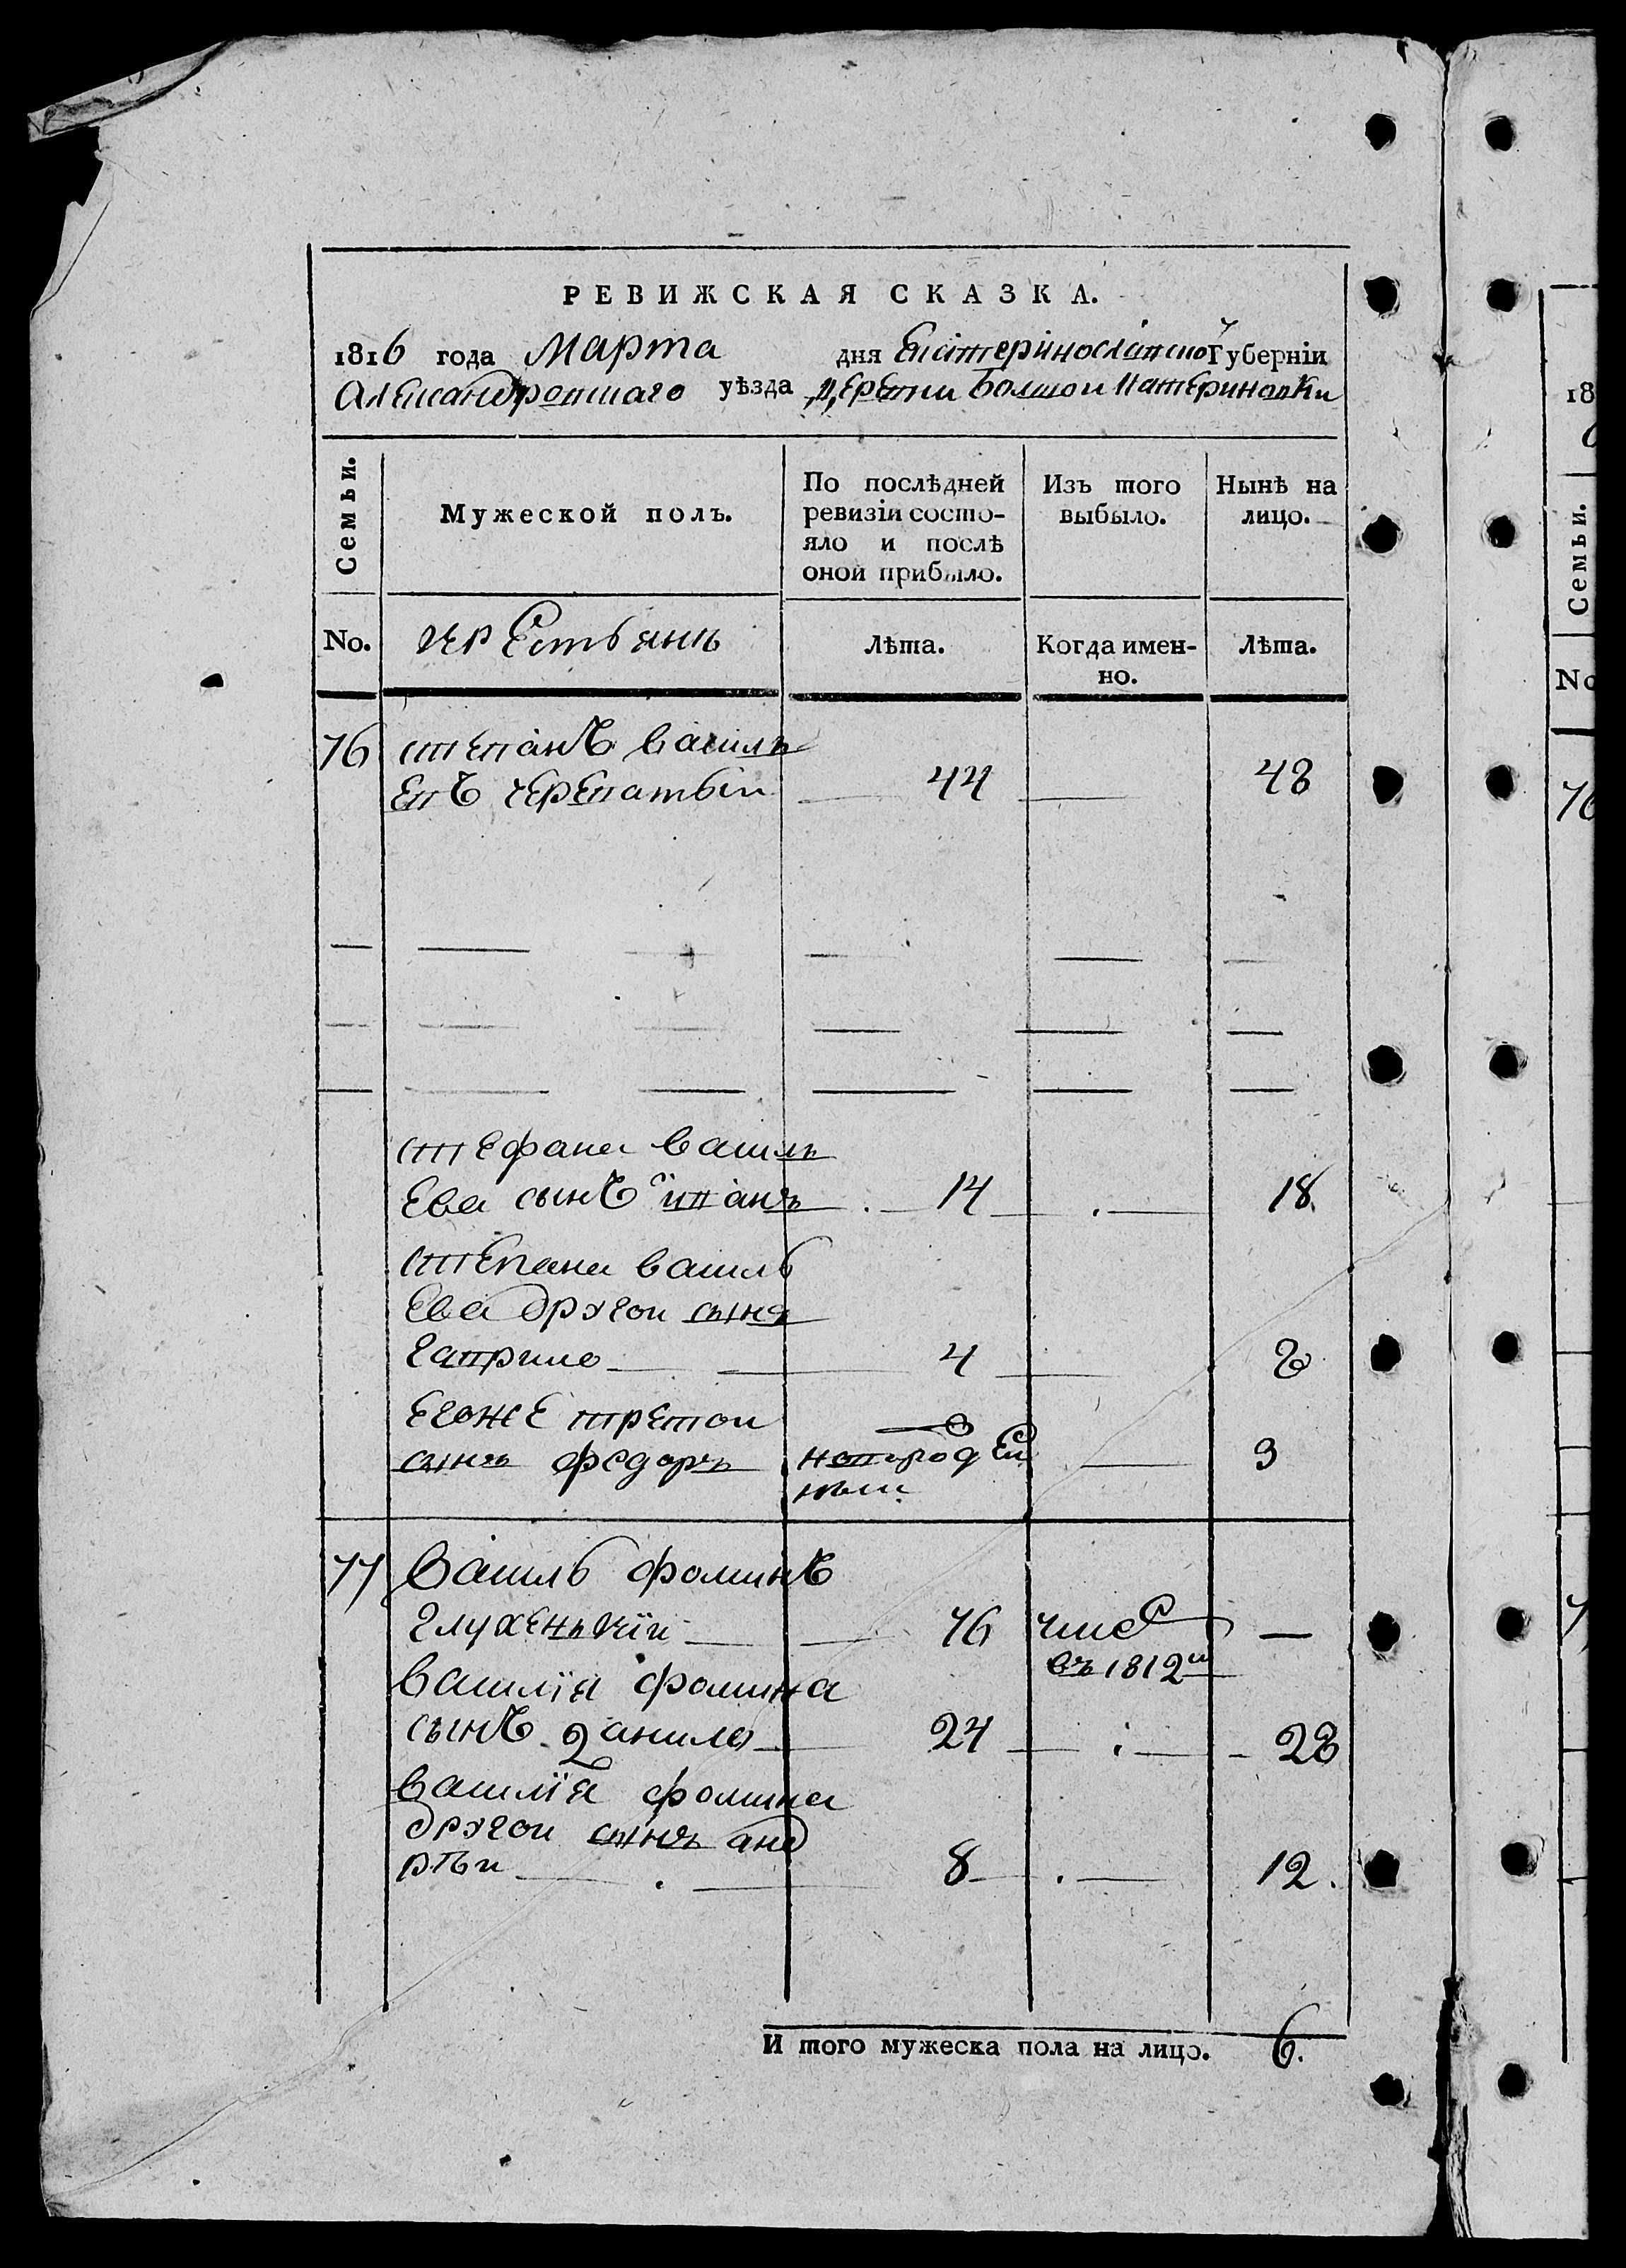 РЕВИЖСКАЯ СКАЗКА.
1816 года Марта дня Екатеринославской Губерніи
Александровскаго уѣзда деревни Болшой Катериновки
Семьи.
Мужеской полъ.
По послѣдней
ревизіи состо-
яло и послѣ
оной прибыло.
Изъ того
выбыло.
Нынѣ на
лицо.
No.
крестьянъ
Лѣта.
Когда имен-
но.
Лѣта.
76 степанъ василь
евъ 44 48
стефана василь
ева сынъ иванъ 14 18
степана василь
ева другой сынъ
гаврило 4 8
егоже третой
сынъ федоръ новорожден 3
ный
77 василь фоминъ
глухенькій 76 —
въ 1812м
василія фомина
сынъ данило 24 28
василія фомина
другой сынъ анд
рѣй 8 12.
И того мужеска пола на лицо. 6.
18
Семьи.
No
76
7